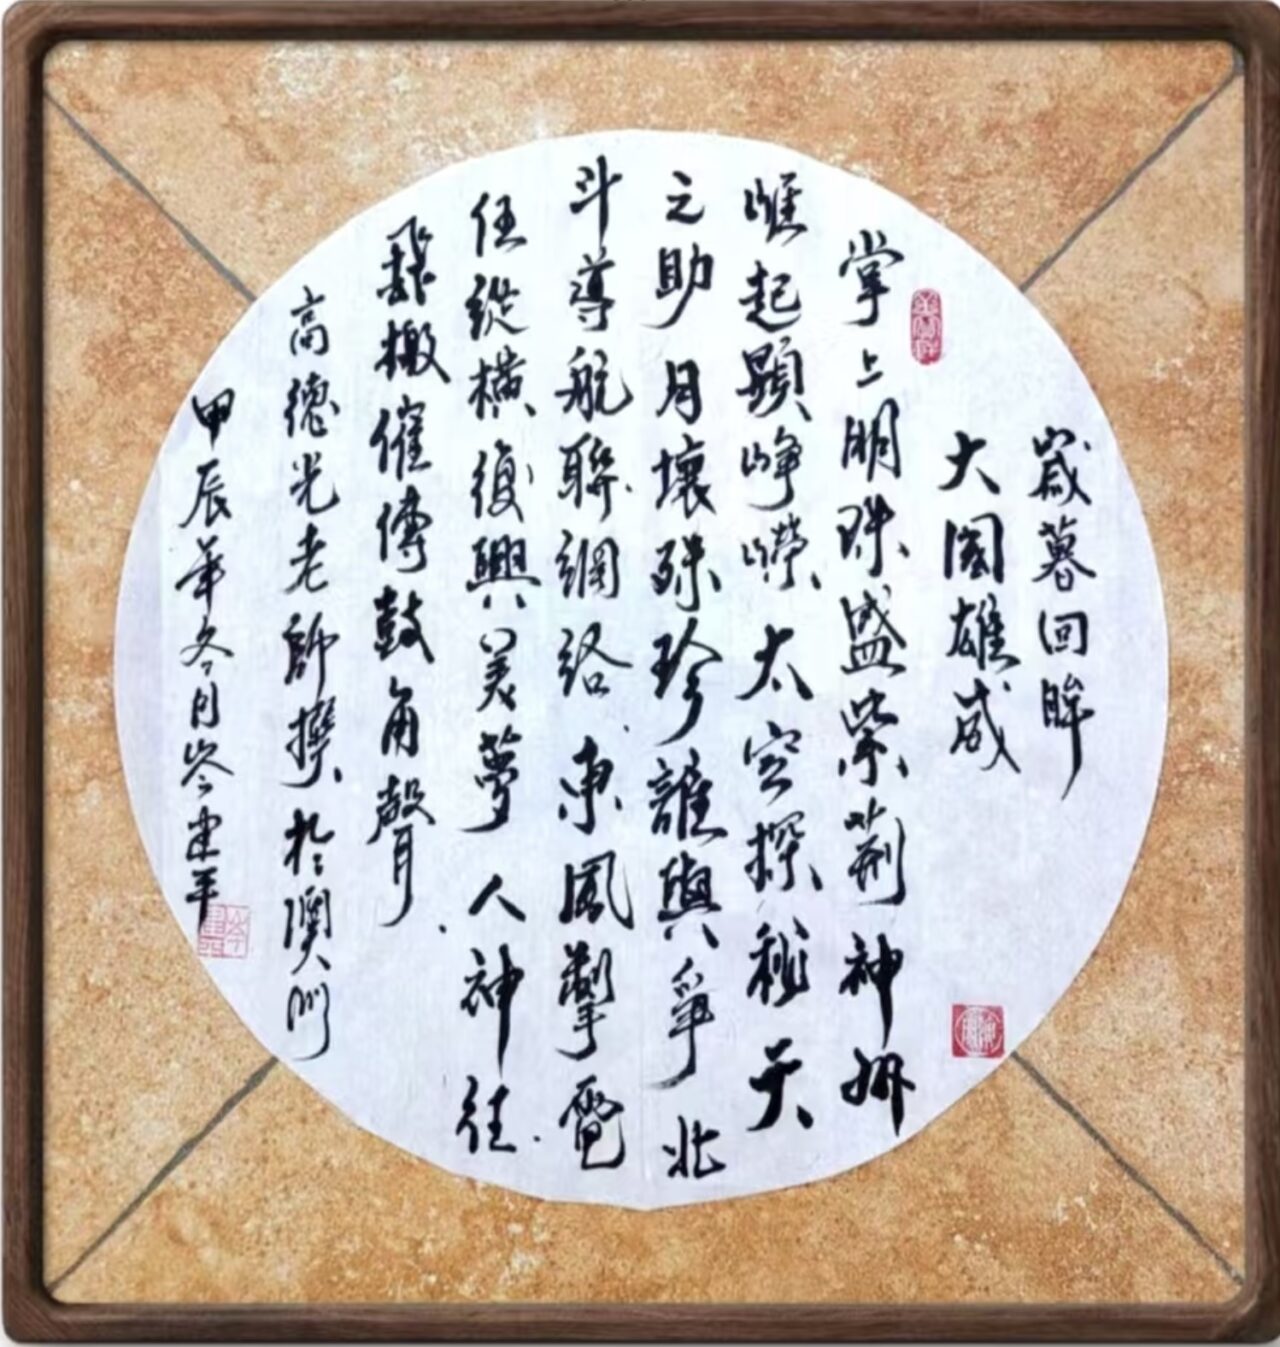 歲暮回眸
大國雄威
掌上明珠盛紫荊神州
崛起顯崢嶸太空探秘天
之助月壤殊珍誰與爭北
斗導航聯網絡東風擊電
任縱橫復興美夢人神往
飛檄催傳鼓角聲
高德光老師撰於澳門
甲辰年冬月岑建平